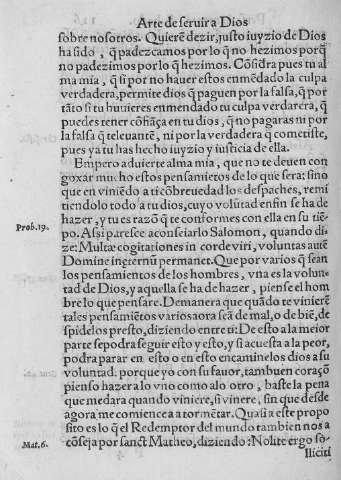 Arte de seruir a Dios
sobre nosotros. Quierē dezir, justo iuyzio de Dios
ha sido, q̄ padezcamos por lo q̄ no hezimos porq̄
no padezimos por lo q̄ hezimos. Cōsidra pues tu al
ma mia, q̄ si por no hauer estos enmēdado la culpa
verdadera, permite dios q̄ paguen por la falsa, q̄ por
tāto si tu huuieres enmendado tu culpa verdarera, q̄
puedes tener cōfiāça en tu dios, q̄ no pagaras ni por
la falsa q̄ te leuantē, ni por la verdadera q̄ cometiste,
pues ya tu has hecho iuyzio y iusticia de ella.
Empero aduierte alma mia, que no te deuen con
goxar mucho estos pensamiētos de lo que sera: sino
que en viniēdo a ti cō breuedad los despaches, remi
tiendolo todo a tu dios, cuyo volūtad enfin se ha de
hazer, y tu es razō q̄ te conformes con ella en su tiē-
Prob. 19.
po. Assi paresce aconseiarlo Salomon, quando di-
ze: Multæ cogitationes in corde viri, voluntas autē
Domine in æternū permanet. Que por varios q̄ sean
los pensamientos de los hombres, vna es la volun-
tad de Dios, y aquella se ha de hazer, piense el hom
bre lo que pensare. De manera que quādo te vinierē
tales pensamiētos varios aora seā de mal, o de biē, de
spidelos presto, diziendo entre ti: De esto a la meior
parte se podra seguir esto y esto, y si acuesta a la peor,
podra parar en esto o en esto encaminelos dios a su
voluntad. porque yo con su fauor, tambuen coraçō
pienso hazer a lo vno como a lo otro, baste la pena
que me dara quando viniere, si vinere, sin que desde
agora me comience a tormētar. Quasi a este propo
sito es lo q̄ el Redemptor del mundo tambien nos a
Mat. 6.
cōseja por sanct Matheo, diziendo: Nolite ergo so-
lliciti